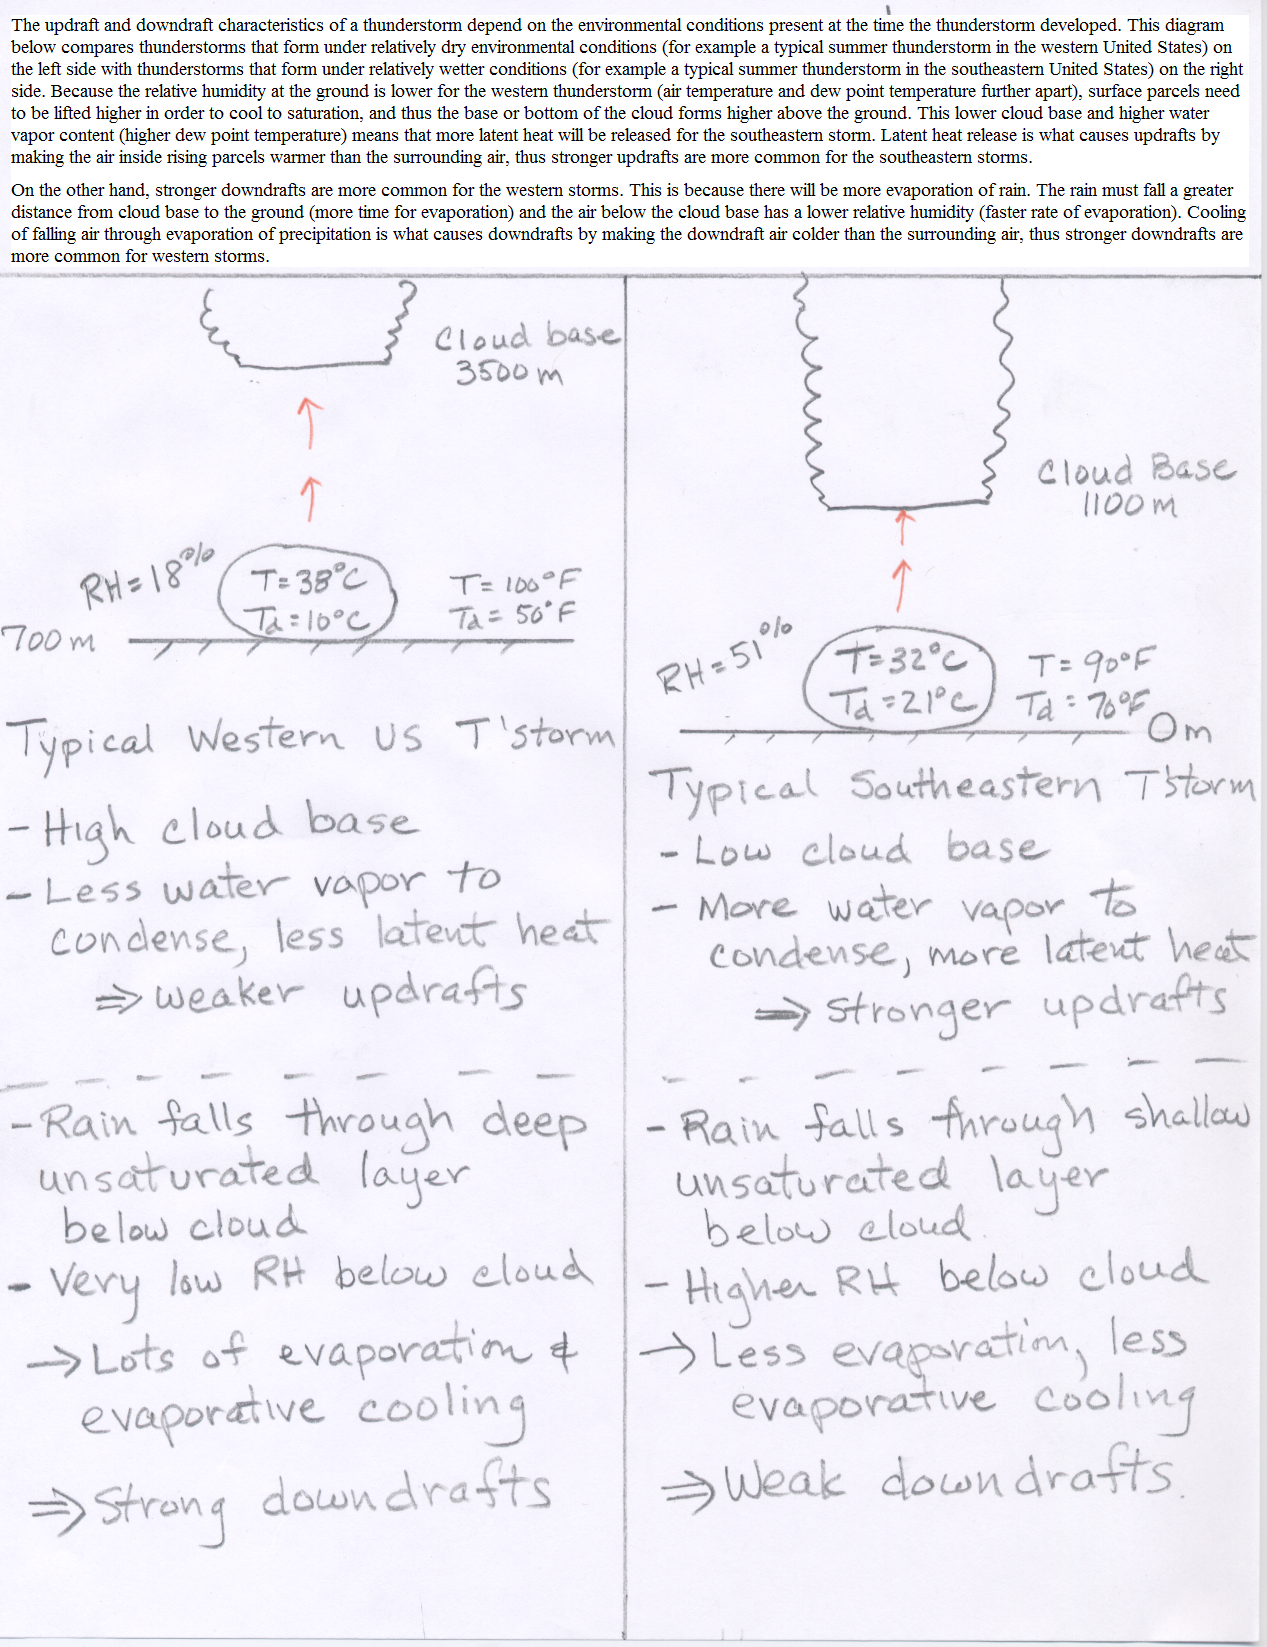 The updraft and downdraft characteristics of a thunderstorm depend on the environmental conditions present at the time the thunderstorm developed. This diagram
below compares thunderstorms that form under relatively dry environmental conditions (for example a typical summer thunderstorm in the western United States) on
the left side with thunderstorms that form under relatively wetter conditions (for example a typical summer thunderstorm in the southeastern United States) on the right
side. Because the relative humidity at the ground is lower for the western thunderstorm (air temperature and dew point temperature further apart), surface parcels need
to be lifted higher in order to cool to saturation, and thus the base or bottom of the cloud forms higher above the ground. This lower cloud base and higher water
vapor content (higher dew point temperature) means that more latent heat will be released for the southeastern storm. Latent heat release is what causes updrafts by
making the air inside rising parcels warmer than the surrounding air, thus stronger updrafts are more common for the southeastern storms.
On the other hand, stronger downdrafts are more common for the western storms. This is because there will be more evaporation of rain. The rain must fall a greater
distance from cloud base to the ground (more time for evaporation) and the air below the cloud base has a lower relative humidity (faster rate of evaporation). Cooling
of falling air through evaporation of precipitation is what causes downdrafts by making the downdraft air colder than the surrounding air, thus stronger downdrafts are
more common for western storms.
Cloud base
3500 m
RH=18%
T=38°C
Td=10°C
T=100°F
Td=50°F
700 m
Typical Western US T'storm
- High cloud base
- Less water vapor to
condense, less latent heat
⇒ weaker updrafts
- Rain falls through deep
unsaturated layer
below cloud
- Very low RH below cloud
→ Lots of evaporation &
evaporative cooling
⇒ Strong downdrafts
Cloud Base
1100 m
RH=51%
T=32°C
Td=21°C
T=90°F
Td=70°F
0m
Typical Southeastern T'Storm
- Low cloud base
- More water vapor to
condense, more latent heat
⇒ stronger updrafts
- Rain falls through shallow
unsaturated layer
below cloud.
- Higher RH below cloud
→ Less evaporation, less
evaporative cooling
⇒ Weak downdrafts.